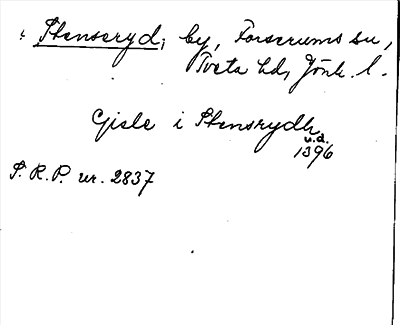 Stenseryd, by, Forserums sn,
Tveta hd, Jönk. l.
Gisle i Stensrydh
u.d.
1396
S. R. P. nr. 2837